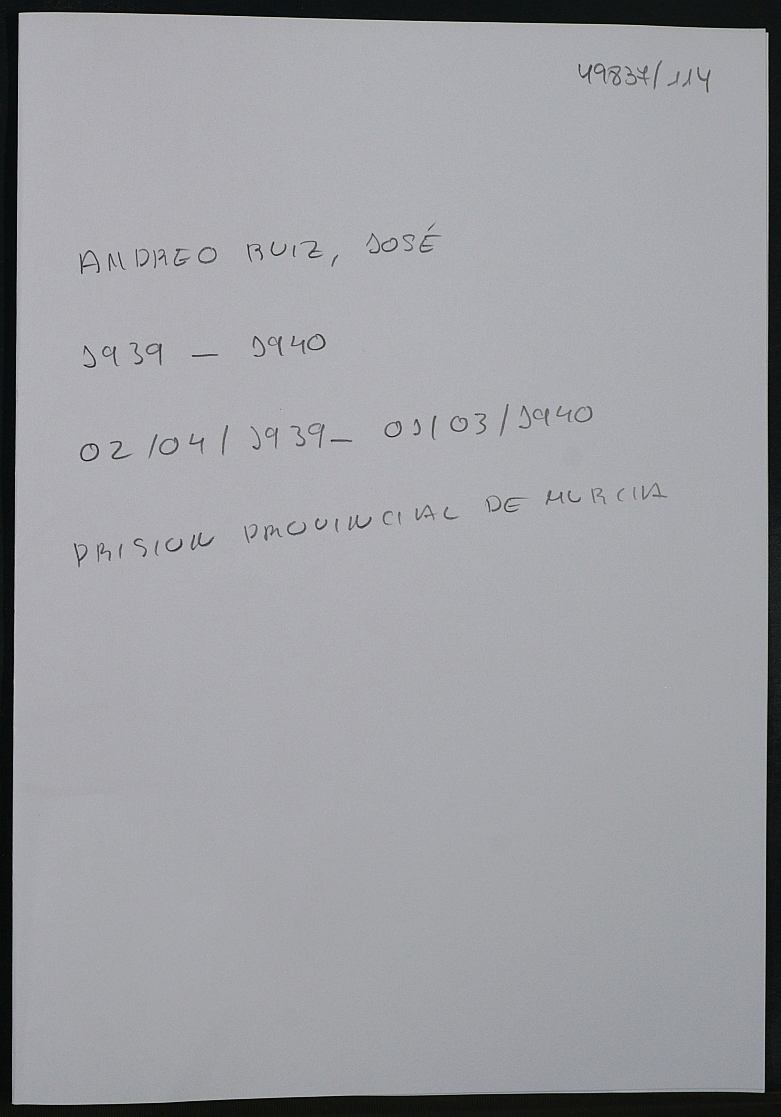 49837/114
ANDREO RUIZ, JOSÉ
1939 - 1940
02/04/1939- 01/03/1940
PRISION PROVINCIAL DE MURCIA